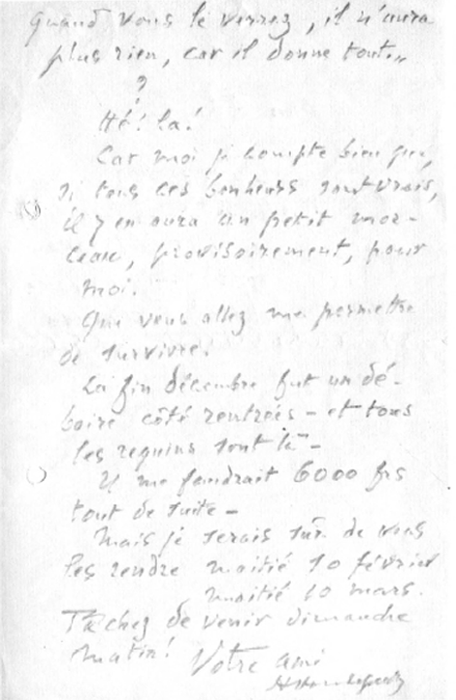 Quand vous le verrez, il n'aura
plus rien, car il donne tout..
?
Hé! là!
Car moi je compte bien que,
si tous ces bonheurs sont vrais,
il y en aura un petit mor-
ceau, provisoirement, pour
moi.
Que vous allez me permettre
de survivre.
La fin décembre fut un dé-
boire côté rentrées - et tous
les requins sont là -
Il me faudrait 6000 frs
tout de suite -
Mais je serais sûr de vous
les rendre moitié 10 février
moitié 10 mars.
Tâchez de venir dimanche
matin! Votre ami